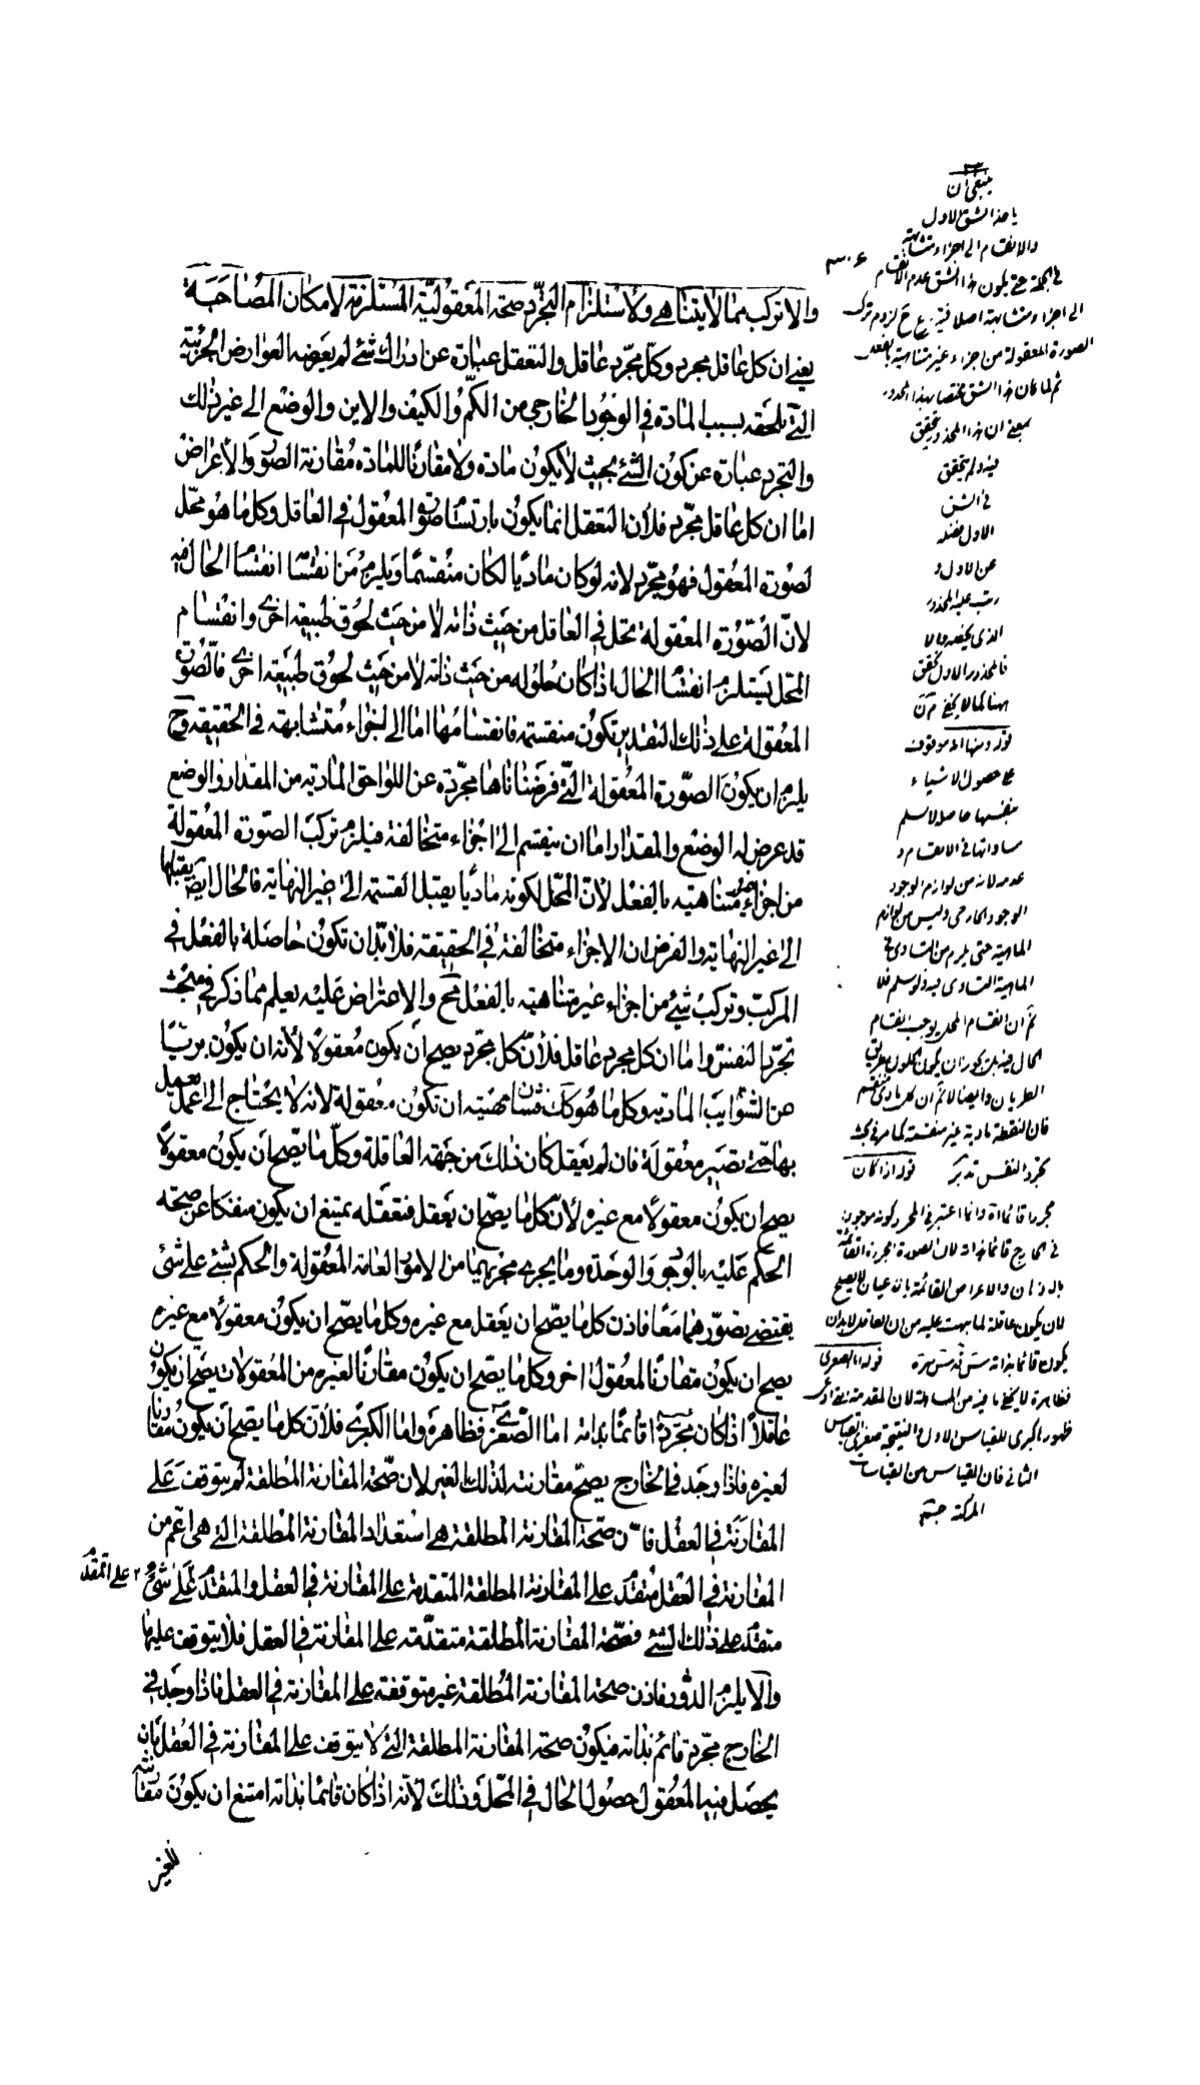 والا تركب مما لا يتناهى ولاستلزام التجرّد صحة المعقوليّة المستلزمة لامكان المصاحبة
يعنى ان كل عاقل مجرد وكل مجرّد عاقل والتعقل عبارة عن ادراك شئ لم يعرضه العوارض الجزئية
التى تلحقه بسبب المادة فى الوجود الخارجى من الكمّ والكيف والاين والوضع الى غير ذلك
والتجرد عبارة عن كون الشئ بحيث لا يكون مادة ولا مقارنا للمادة مقارنة الصور والأعراض
اما ان كل عاقل مجّرد فلأن التعقل انما يكون بارتسام صورة المعقول فى العاقل وكل ما هو محّل
لصورة المعقول فهو مجّرد لانه لو كان ماديا لكان منقسما ويلزم من انقسامه انقسام الحال فيه
لانّ الصّورة المعقولة تحل فى العاقل من حيث ذاته لا من حيث لحوق طبيعة اخرى وانقسام
المحّل يستلزم انقسام الحال اذا كان حلوله من حيث ذاته لا من حيث لحوق طبيعة اخرى فالصّورة
المعقولة على ذلك التقدير تكون منقسمة فانقسامها اما الى اجزاء متشابهة فى الحقيقة وح
يلزم ان يكون الصّورة المعقولة التى فرضناها مجّردة عن اللواحق المادية من المقدار والوضع
قد عرض له الوضع والمقدار اما ان ينقسم الى اجزاء متخالفة فيلزم تركب الصّورة المعقولة
من اجزاء غير متناهية بالفعل لانّ المحّل لكونه ماديا يقبل القسمة الى غير النهاية فالحال ايضا يقبلها
الى غير النهاية والفرض ان الاجزاء متخالفة فى الحقيقة فلا بّد ان تكون حاصلة بالفعل فى
المركّب وتركب شئ من اجزاء غير متناهية بالفعل مح والاعتراض عليه يعلم مما ذكر فى مبحث
تجرّد النفس واما ان كل مجرد عاقل فلأن كل مجّرد يصح ان يكون معقولًا لأنه ان يكون بريّا
عن الشوايب المادية وكل ما هو كك فشان مهيته ان تكون معقولة لانه لا يحتاج الى عمل يعمل
بها حتى تصير معقولة فان لم يعقل كان ذلك من جهة العاقلة وكلّ ما يصّح ان يكون معقولًا
يصح ان يكون معقولًا مع غيره لأنّ كل ما يصّح ان يعقل فتعقّله يمتنع ان يكون منفكا عن صحة
الحكم عليه بالوجود والوحدة وما يجرى مجريهما من الامور العامة المعقولة والحكم بشئ على شئ
يقتضى تصّورهما معًا فاذن كل ما يصّح ان يعقل مع غيره وكل ما يصّح ان يكون معقولًا مع غيره
يصح ان يكون مقارنا لمعقول اخر وكل ما يصّح ان يكون مقارنا لغيره من المعقولات يصّح ان يكون
عاقلًا اذا كان مجرّدا قائمًا بذاته اما الصّغرى فظاهرة واما الكبرى فلأن كل ما يصح ان يكون مقارنا
لغيره فاذا وجد فى الخارج يصحّ مقارنته لذلك الغير لان صّحة المقارنة المطلقة لم يتوقف على
المقارنة فى العقل فان صّحة المقارنة المطلقة هى استعداد المقارنة المطلقة التى هى اعّم من
المقارنة فى العقل متقدّم على المقارنة المطلقة المتقدمة على المقارنة فى العقل والمتقدّم على شئ ٢ على المتقدم
متقدّم على ذلك الشئ فصّحة المقارنة المطلقة متقدّمة على المقارنة فى العقل فلا يتوقف عليها
والا يلزم الدّور فاذن صحة المقارنة المطلقة غير متوقفة على المقارنة فى العقل فاذا وجد فى
الخارج مجّرد قائم بذاته فيكون صحة المقارنة المطلقة التى لا يتوقف على المقارنة فى العقل بان
يحصل فيه المعقول حصول الحال فى المحّل وذلك لانّه اذا كان قائما بذاته امتنع ان يكون مقارنته
للغير
ينبغى ان
ياخذ الشق الاول
والانقسام الى اجزاء متشابهة
فى الجملة حتى يكون هذا الشق عدم الانقسام
الى اجزاء متشابهة اصلا
الصورة المعقولة من اجزاء غير متناهية بالفعل
ثم لما كان هذا الشق مختصا بهذا المحذور
بمعنى ان هذا المحذور يتحقق
فيه ولم يتحقق
فى الشق
الاول فصله
عن الاول و
رتب عليه المحذور
الذى يخصه والا
فالمحذور الاول يتحقق
ههنا كما لا يخفى
على حصول الاشياء
بنفسها
مساواتها فى الانقسام و
عدمه لانه من لوازم الوجود
الوجود الخارجى وليس من لوازم
الماهية حتى يلزم من التساوى فى
الماهية التساوى فيه ولو سلم فلا
ثم ان انقسام المحل يوجب انقسام
الحال
فان النقطة مادية غير منقسمة كما مر فى بحث
تجرد النفس تدبر قوله اذا كان
مجردا قائما
فى الخارج قائما بذاته لان الصورة المجردة القائمة
بالاذهان والاعراض القائمة بالاعيان لا يصلح
لان يكون عاقلة لما نبهت عليه من ان العاقل لا بد ان
يكون قائما بذاته قوله اما الصغرى
فظاهرة
ظهور الكبرى للقياس الاول والنتيجة صغرى القياس
الثانى فان القياس من القياسات
المركبة